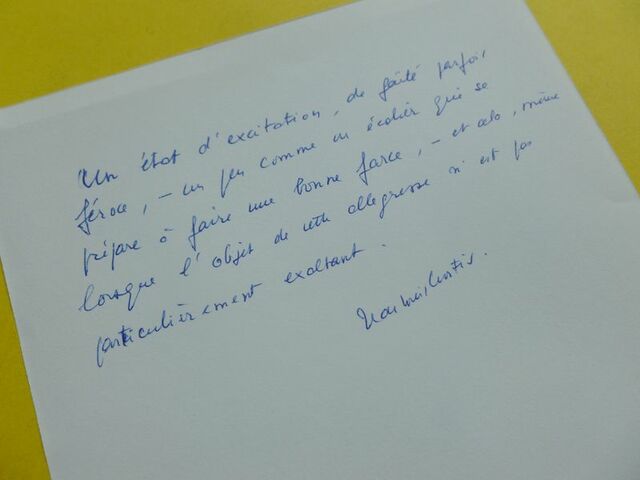 Un état d'excitation, de gaîté parfois
féroce, – un peu comme un écolier qui se
prépare à faire une bonne farce, – et cela, même
lorsque l'objet de cette allegresse n'est pas
particulièrement exaltant.